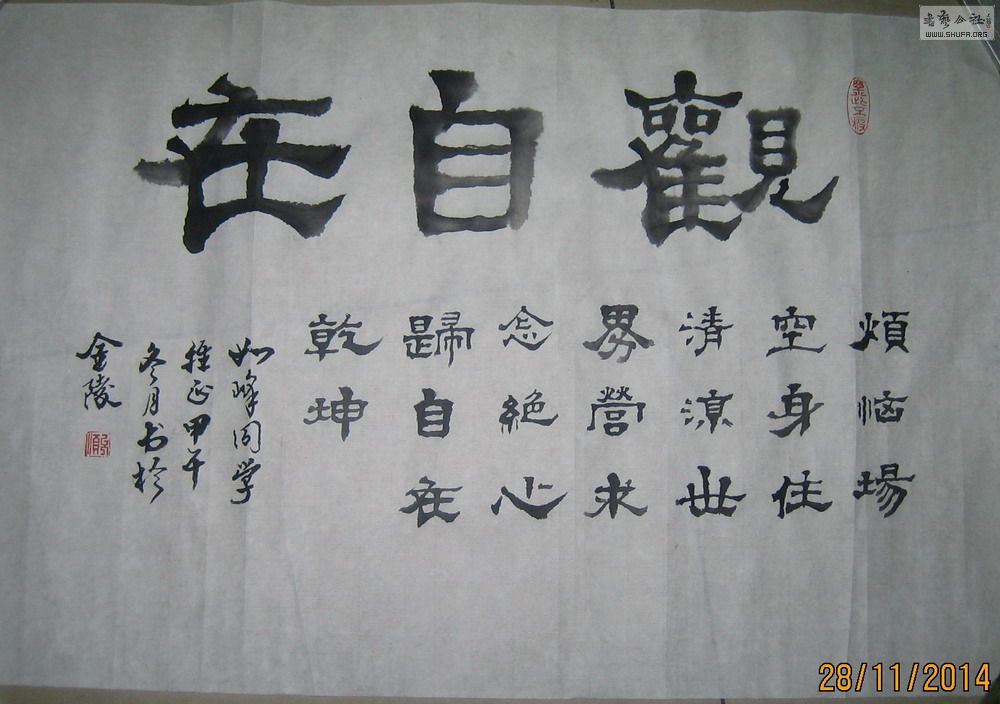 觀自在
煩惱場
空身住
清涼世
界營求
念絕心
歸自在
乾坤
如峰同学
雅正甲午
冬月书於
金陵
书艺公社
www.SHUFA.ORG
28/11/2014